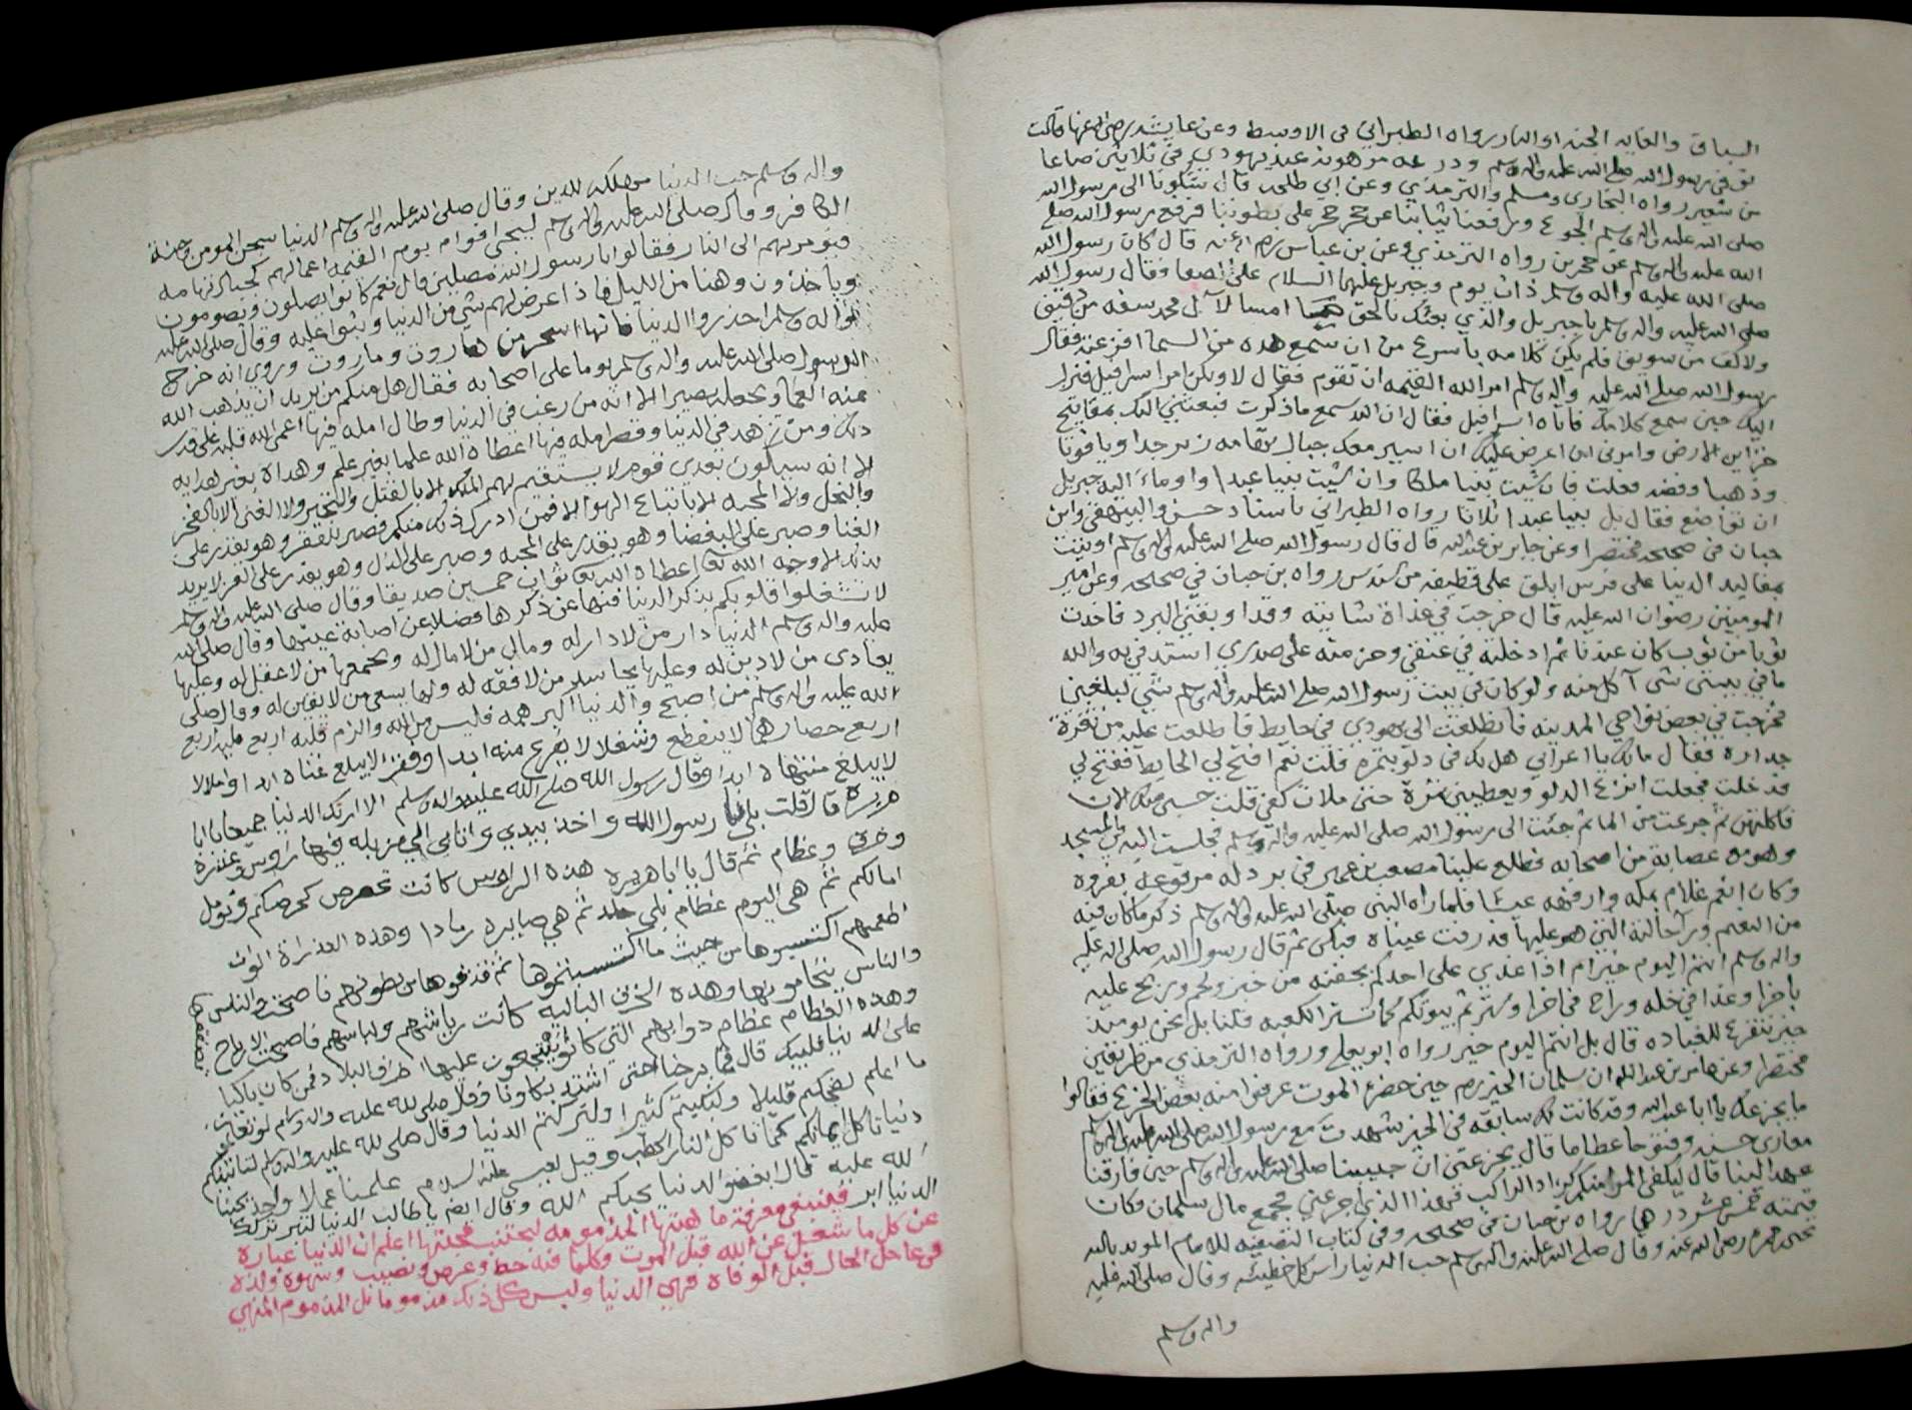 السباق والغايه الجنه او النار رواه الطبراني في الاوسط وعن عايشه رضي الله عنها قالت
توفي رسول الله صلى الله عليه واله وسلم ودرعه مرهونه عند يهودي في ثلاثين صاعا
من شعير رواه البخاري ومسلم والترمذي وعن ابي طلحه قال شكونا الى رسول الله
صلى الله عليه واله وسلم الجوع ورفعنا ثيابنا عن حجر حجر على بطوننا فرفع رسول الله صلى
الله عليه واله وسلم عن حجرين رواه الترمذي وعن بن عباس رضي الله عنه قال كان رسول الله
صلى الله عليه واله وسلم ذات يوم وجبريل عليهما السلام على الصفا وقال رسول الله
صلى الله عليه واله وسلم يا جبريل والذي بعثك بالحق ما امسا لآل محمد سفه من دقيق
ولا كف من سويق فلم يكن كلامه باسرع من ان سمع هده من السما افزعته فقال
رسول الله صلى الله عليه واله وسلم امر الله القيمه ان تقوم فقال لا ولكن امر اسرافيل فنزل
اليك حين سمع كلامك فاتاه اسرافيل فقال ان الله سمع ما ذكرت فبعثني اليك بمفاتيح
خزاين الارض وامرني ان اعرض عليك ان اسير معك جبال تهامه زمردا وياقوتا
وذهبا وفضه فعلت فان شيت نبيا ملكا وان شيت نبيا عبدا واوماء اليه جبريل
ان تواضع فقال بل نبيا عبدا ثلاثا رواه الطبراني باسناد حسن والبيهقي وابن
حبان في صحيحه مختصرا وعن جابر بن عبد الله قال قال رسول الله صلى الله عليه واله وسلم اوتيت
بمقاليد الدنيا على فرس ابلق على قطيفه من سندس رواه بن حبان في صحيحه وعن امير
المومنين رضوان الله عليه قال خرجت في غداة شاتيه وقد اوبقني البرد فاخذت
ثوبا من ثوب كان عندنا ثم ادخلته في عنقي وحزمته على صدري استدفي به والله
ما في بيتي شي آكل منه ولو كان في بيت رسول الله صلى الله عليه واله وسلم شي لبلغني
فخرجت في بعض نواحي المدينه فانطلقت الى يهودي في حايط فاطلعت عليه من ثغرة
جداره فقال مالك يا اعرابي هل لك في دلو بتمره قلت نعم افتح لي الحايط ففتح لي
فدخلت فجعلت انزع الدلو ويعطيني تمرة حتى ملات كفي قلت حسبي منك الان
فاكلتهن ثم جرعت من الما ثم جئت الى رسول الله صلى الله عليه واله وسلم فجلست اليه في المسجد
وهو مع عصابة من اصحابه فطلع علينا مصعب بن عمير في بردله مرقوعه بفروه
وكان انعم غلام بمكه وارفهه عيشا فلما راه النبي صلى الله عليه واله وسلم ذكر ما كان فيه
من النعيم ورآ حالته التي هو عليها فذرفت عيناه فبكى ثم قال رسول الله صلى الله عليه
واله وسلم انتم اليوم خير ام اذا غدي على احدكم بجفنه من خبز ولحم وريح عليه
باخرا وغدا في حله وراح في اخرا وسترتم بيوتكم كما تستر الكعبه قلنا بل نحن يوميذ
خير نتفرغ للعباده قال بل انتم اليوم خير رواه ابو يعلى ورواه الترمذي من طريقين
مختصرا وعن عامر بن عبد الله ان سلمان الخير رضي حين حضره الموت عرفوا منه بعض الجزع فقالوا
ما يجزعك يا ابا عبد الله وقد كانت لك سابقه في الخير شهدت مع رسول الله صلى الله عليه واله وسلم
مغازي حسنه وفتوحا عظاما قال يجزعني ان حبيبنا صلى الله عليه واله وسلم حين فارقنا
عهد الينا قال ليكفي المرا منكم كزاد الراكب فهذا الذي اجزعني فجمع مال سلمان وكان
قيمته خمسه عشر درهما رواه بن حبان في صحيحه وفي كتاب التصفيه للامام المويد بالله
يحيى بن حمزه رضي الله عنه وقال صلى الله عليه واله وسلم حب الدنيا راس كل خطيئه وقال صلى الله عليه
واله وسلم
واله وسلم حب الدنيا مهلكه للدين وقال صلى الله عليه واله وسلم الدنيا سجن المومن وجنة
الكافر وقال صلى الله عليه واله وسلم ليجئ اقوام يوم القيمه اعمالهم كجبال تهامه
فيومر بهم الى النار فقالوا يا رسول الله مصلين قال نعم كانوا يصلون ويصومون
وياخذون وهنا من الليل فاذا عرض لهم شي من الدنيا وثبوا عليه وقال صلى الله عليه
واله وسلم احذروا الدنيا فانها اسحر من هاروت وماروت وروي انه خرج
الرسول صلى الله عليه واله وسلم يوما على اصحابه فقال هل منكم من يريد ان يذهب الله
عنه العما ويجعله بصيرا الا انه من رغب في الدنيا وطال امله فيها اعمى الله قلبه على قدر
ذلك ومن زهد في الدنيا وقصر امله فيها اعطاه الله علما بغير علم وهداه بغير هدايه
الا انه سيكون بعدي قوم لا يستقيم لهم الملك الا بالقتل والتجبر ولا الغنى الا بالفخر
والبخل ولا المحبه الا باتباع الهوا الا فمن ادرك ذلك منكم فصبر للفقر وهو يقدر على
الغنا وصبر على البغضا وهو يقدر على المحبه وصبر على الذل وهو يقدر على العز لا يريد
بذلك الا وجه الله تعا اعطاه الله تعا ثواب خمسين صديقا وقال صلى الله عليه واله وسلم
لا تشغلوا قلوبكم بذكر الدنيا فنها عن ذكرها فضلا عن اصابة عينها وقال صلى الله
عليه واله وسلم الدنيا دار من لا دار له ومال من لا مال له ويجمعها من لا عقل له وعليها
يعادى من لا دين له وعليها يحاسد من لا فقه له ولها يسعى من لا يقين له وقال صلى
الله عليه واله وسلم من اصبح والدنيا اكبر همه فليس من الله والزم قلبه اربع
اربع خصال هما لا ينقطع وشغلا لا يفرغ منه ابدا وفقرا لا يبلغ غناه ابدا واملا لا
لا يبلغ منتهاه ابدا وقال رسول الله صلى الله عليه واله وسلم الا اريك الدنيا جميعا يا ابا
هريرة قال قلت بلى يا رسول الله واخذ بيدي واتا بي الى مزبله فيها راوس وعذرة
وخرق وعظام ثم قال يا ابا هريره هذه الراوس كانت تحرص كحرصكم وتومل
امالكم ثم هي اليوم عظام بلي جلد ثم هي صايره رمادا وهذه العذرة الوان
اطعمتهم اكتسبوها من حيث ما اكتسبتموها ثم قذفوها من بطونهم فاصبحت والناس
والناس يتحامونها وهذه الخرق الباليه كانت رياشهم ولباسهم فاصبحت والرياح تصفقها
وهذه العظام عظام دوابهم التي كانوا ينتجعون عليها اطراف البلاد فمن كان باكيا
على الدنيا فليبك قال فما برحنا حتى اشتد بكاونا وقال صلى الله عليه واله وسلم لو تعلمون
ما اعلم لضحكتم قليلا ولبكيتم كثيرا ولتركتم الدنيا وقال صلى الله عليه واله وسلم لتاتينكم
دنيا تاكل ايمانكم كما تاكل النار الحطب وقيل لعيسى عليه السلام علمنا عملا واحدا يحبنا
الله عليه قال ابغضوا الدنيا يحبكم الله وقال ايضا يا طالب الدنيا لتبر تركك
الدنيا ابر فينبغي معرفة ماهيتها المذمومه ليجتنب محبتها اعلم ان الدنيا عبارة
عن كل ما شغل عن الله قبل الموت وكلما فيه حظ وغرض ونصيب وشهوه ولذه
في عاجل الحال قبل الوفاه فهي الدنيا وليس كل ذلك مذموما بل المذموم المنهي